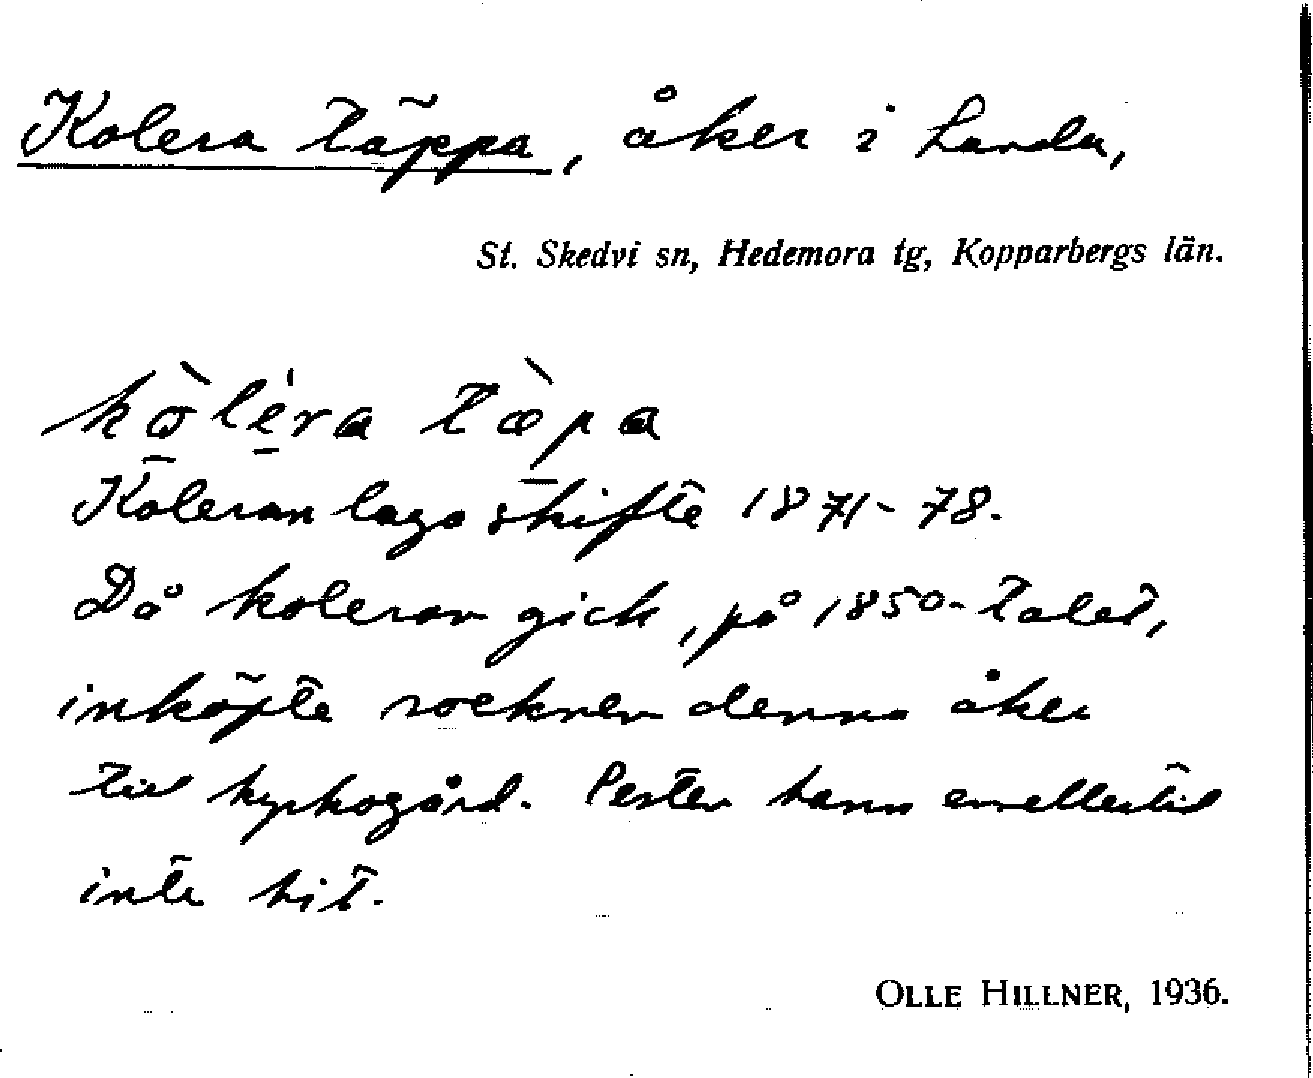 Kolera täppa, åker i Landa,
St. Skedvi sn, Hedemora tg, Kopparbergs län.
kòléra tæ̀pa
Koleran laga skifte 1871-78.
Då koleran gick, på 1850-talet,
inköpte socknen denna åker
till kyrkogård. Pesten hann emellertid
inte hit.
OLLE HILLNER, 1936.